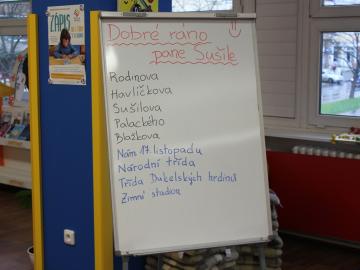 ZÁPIS
Dobré ráno
pane Sušile
Rodinova
Havlíčkova
Sušilova
Palackého
Blažkova
Nám 17. listopadu
Národní třída
Třída Dukelských hrdinů
Zimní stadion